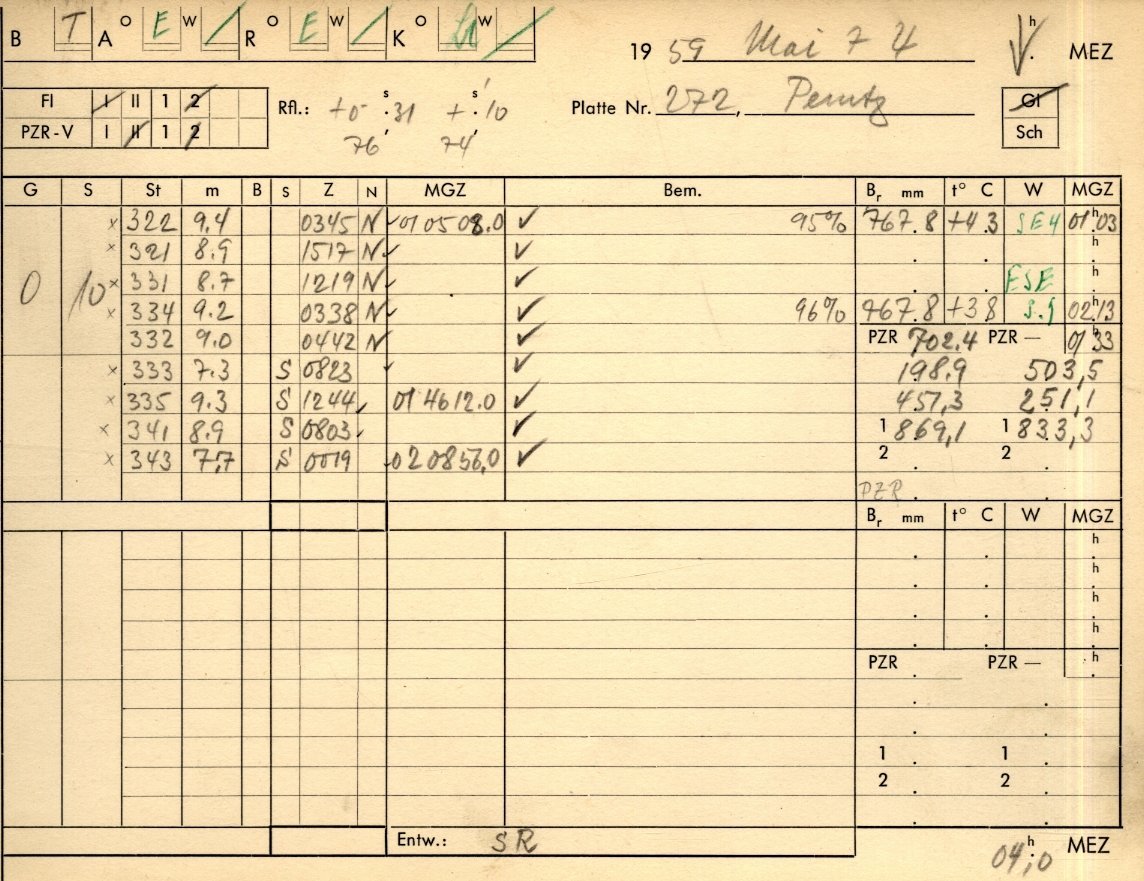 B T A O E W / R O E W / K O W /
19 59 Mai 7 4 h MEZ
FI I II 1 2 Rfl.: +0 s.31 + s.10 Platte Nr. 272, Perutz Gl
PZR-V I II 1 2 76' 74' Sch
G S St m B S Z N MGZ Bem. Br mm t° C W MGZ
0 10 x 322 9.4 0345 N 01 05 08.0 ✓ 95% 767.8 +4.3 SE4 01h03
x 321 8.9 1517 N ✓ h
x 331 8.7 1219 N ✓ ESE h
x 334 9.2 0338 N ✓ 96% 767.8 +3.8 S.9 02h13
332 9.0 0442 N ✓ PZR 702.4 PZR — 01h33
x 333 7.3 S 0823 ✓ 198.9 503,5
x 335 9.3 S 1244 01 46 12.0 ✓ 457,3 251,1
x 341 8.9 S 0803 ✓ 1 869,1 1 833,3
x 343 7,7 S 0019 02 08 56,0 ✓ 2 2
PZR
Br mm t° C W MGZ
h
h
h
h
PZR PZR — h
1 1
2 2
Entw.: SR
04h,0 MEZ